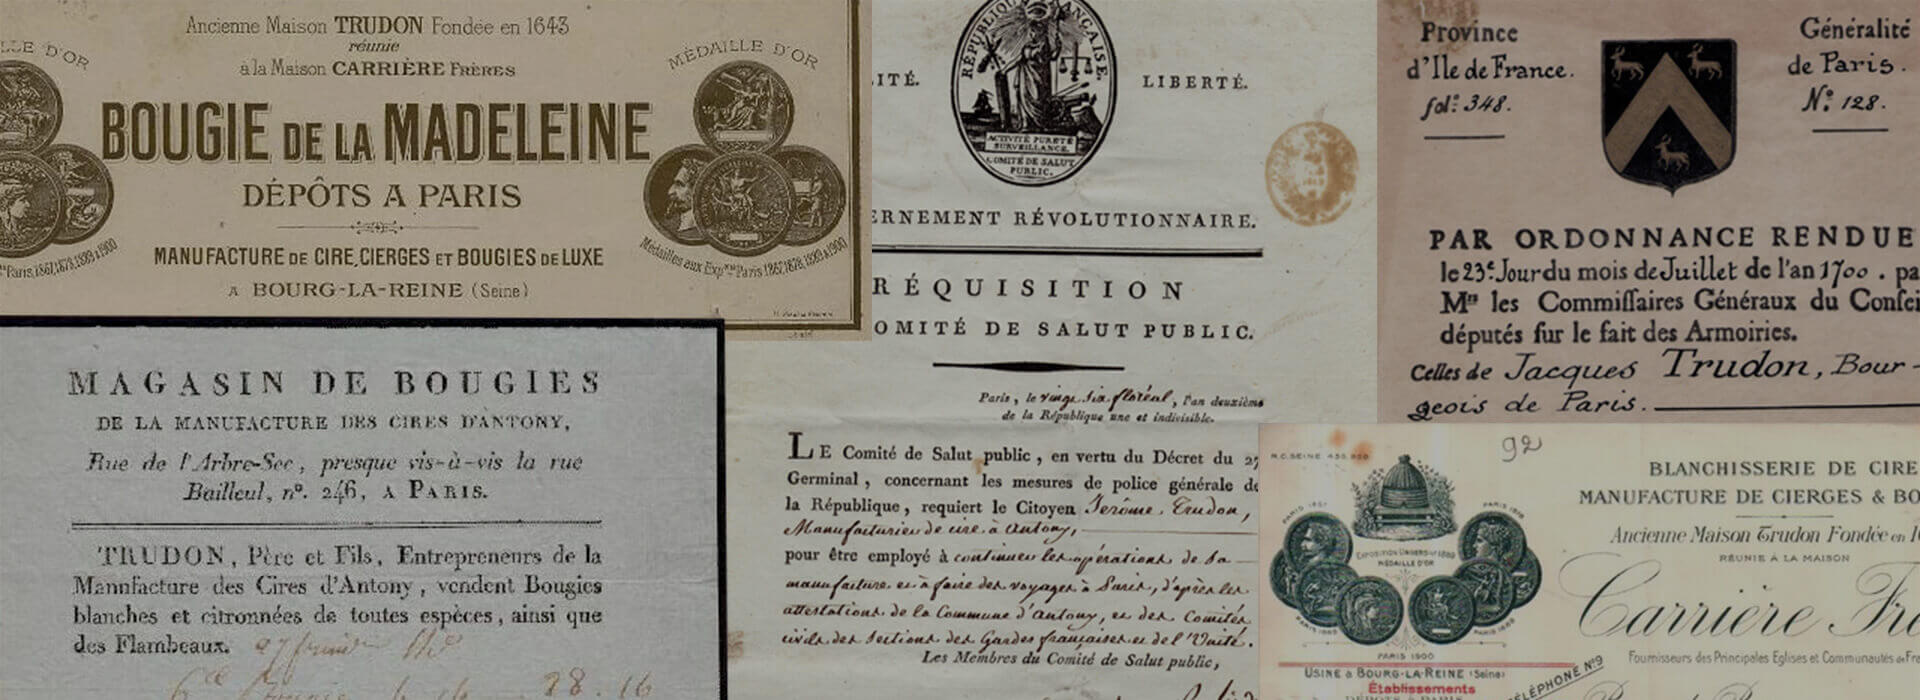 Ancienne Maison TRUDON Fondée en 1643
réunie
à la Maison CARRIÈRE FRÈRES
D'OR
MÉDAILLE D'OR
BOUGIE DE LA MADELEINE
DÉPÔTS A PARIS
MANUFACTURE DE CIRE, CIERGES ET BOUGIES DE LUXE
A BOURG-LA-REINE (Seine)
Paris, 1867, 1878, 1889 & 1900
Médailles aux Expons Paris 1867, 1878, 1889 & 1900
MAGASIN DE BOUGIES
DE LA MANUFACTURE DES CIRES D'ANTONY,
Rue de l'Arbre-Sec, presque vis-à-vis la rue
Bailleul, n°. 246, A PARIS.
TRUDON, Père et Fils, Entrepreneurs de la
Manufacture des Cires d'Antony, vendent Bougies
blanches et citronnées de toutes espèces, ainsi que
des Flambeaux.
28.16
RÉPUBLIQUE FRANÇAISE.
ITÉ. LIBERTÉ.
ACTIVITÉ PURETÉ
SURVEILLANCE.
COMITÉ DE SALUT
PUBLIC.
ERNEMENT RÉVOLUTIONNAIRE.
RÉQUISITION
OMITÉ DE SALUT PUBLIC.
Paris, le vingt six floréal, l'an deuxième
de la République une et indivisible.
LE Comité de Salut public, en vertu du Décret du 27
Germinal, concernant les mesures de police générale de
la République, requiert le Citoyen Jerôme Trudon,
Manufacturier de cire à Antony,
pour être employé à continuer les opérations de sa
manufacture et à faire des voyages à Paris, d'après les
attestations de la Commune d'Antony, et des Comités
civils des Sections des Gardes françaises et de l'Unité.
Les Membres du Comité de Salut public,
Province
d'Ile de France.
fol: 348.
Généralité
de Paris.
N°: 128.
PAR ORDONNANCE RENDUE
le 23e Jour du mois de Juillet de l'an 1700. pa
Mrs les Commissaires Généraux du Consei
députés sur le fait des Armoiries.
Celles de Jacques Trudon, Bour-
geois de Paris.
92
R.C. SEINE
PARIS 1867
PARIS 1878
EXPOSITION UNIVERSle 1889
MÉDAILLE D'OR
PARIS 1889
PARIS 1889
PARIS 1900
USINE à BOURG-LA-REINE (Seine)
Établissements
TÉLÉPHONE N°9
BLANCHISSERIE DE CIRE
MANUFACTURE DE CIERGES & BO
Ancienne Maison Trudon Fondée en 1
RÉUNIE À LA MAISON
Carrière Fr
Fournisseurs des Principales Eglises et Communautés de Fra